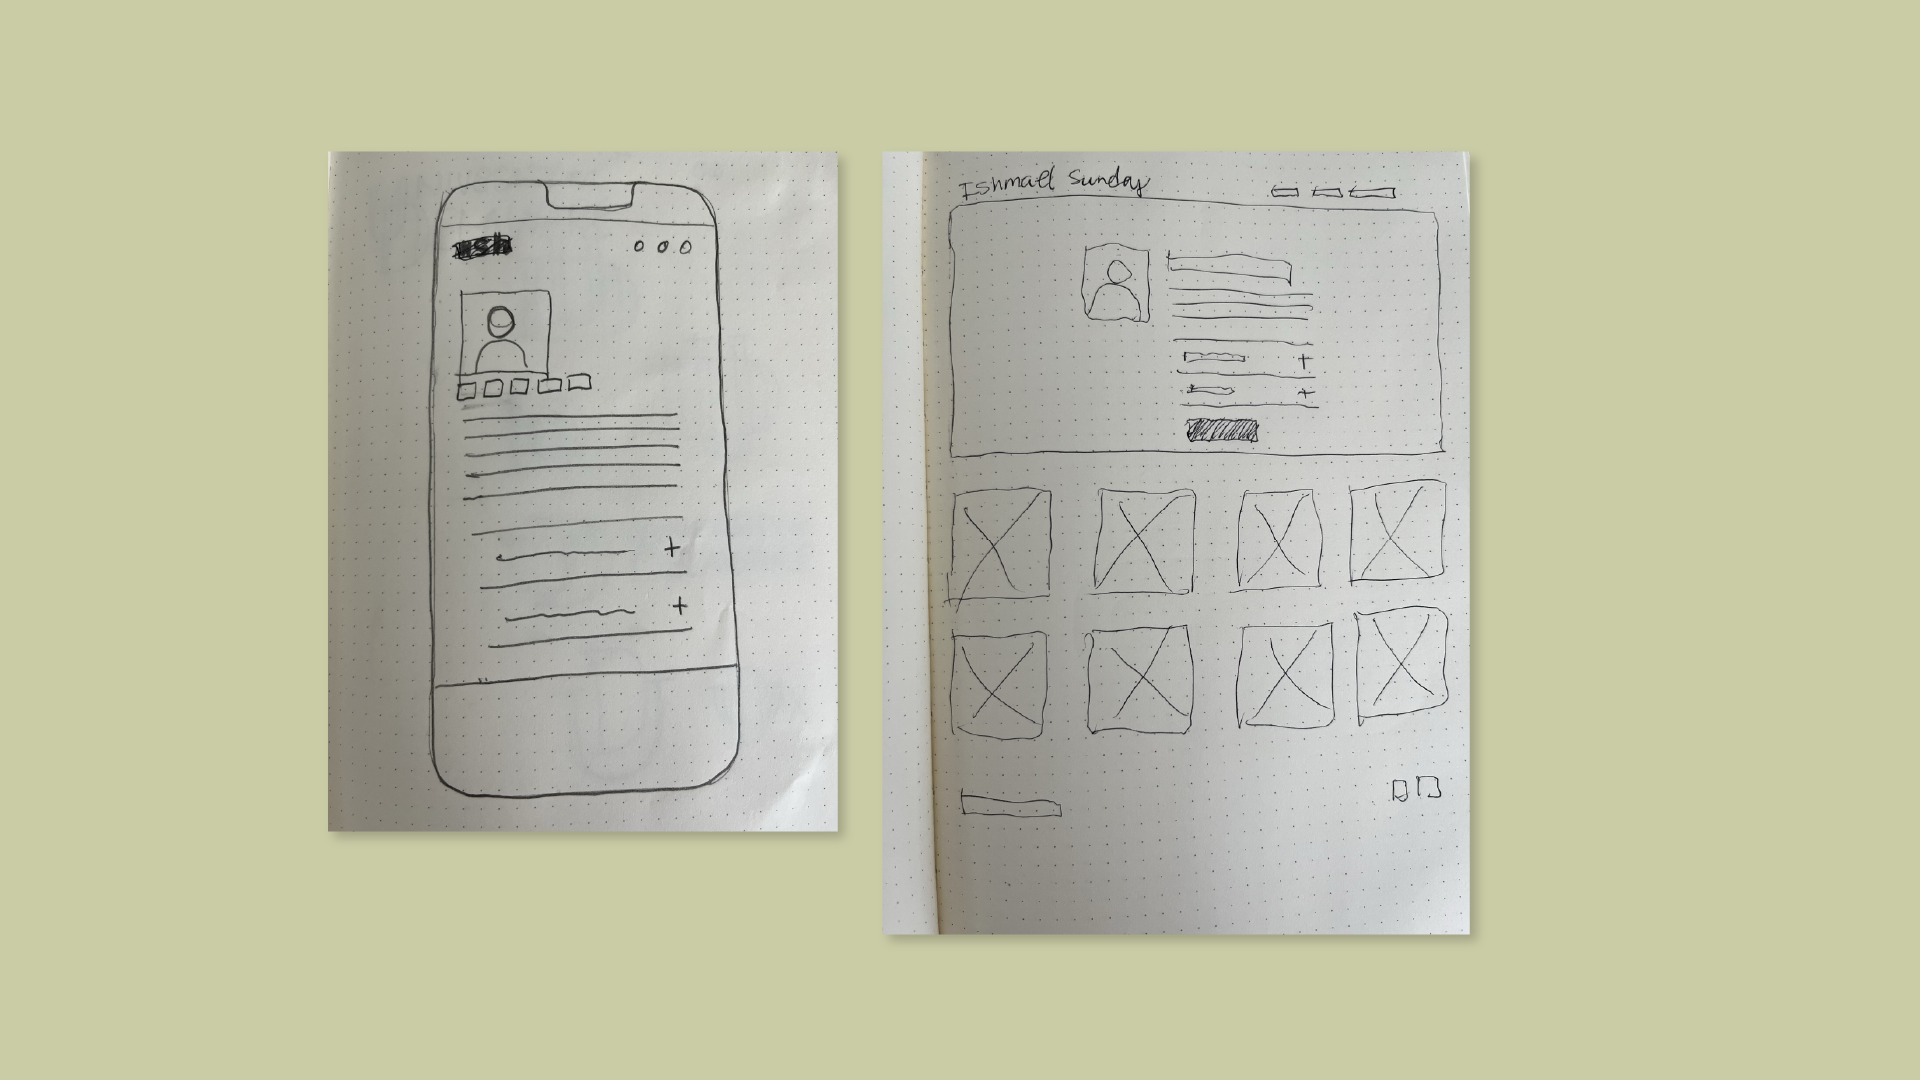 Ishmael Sunday